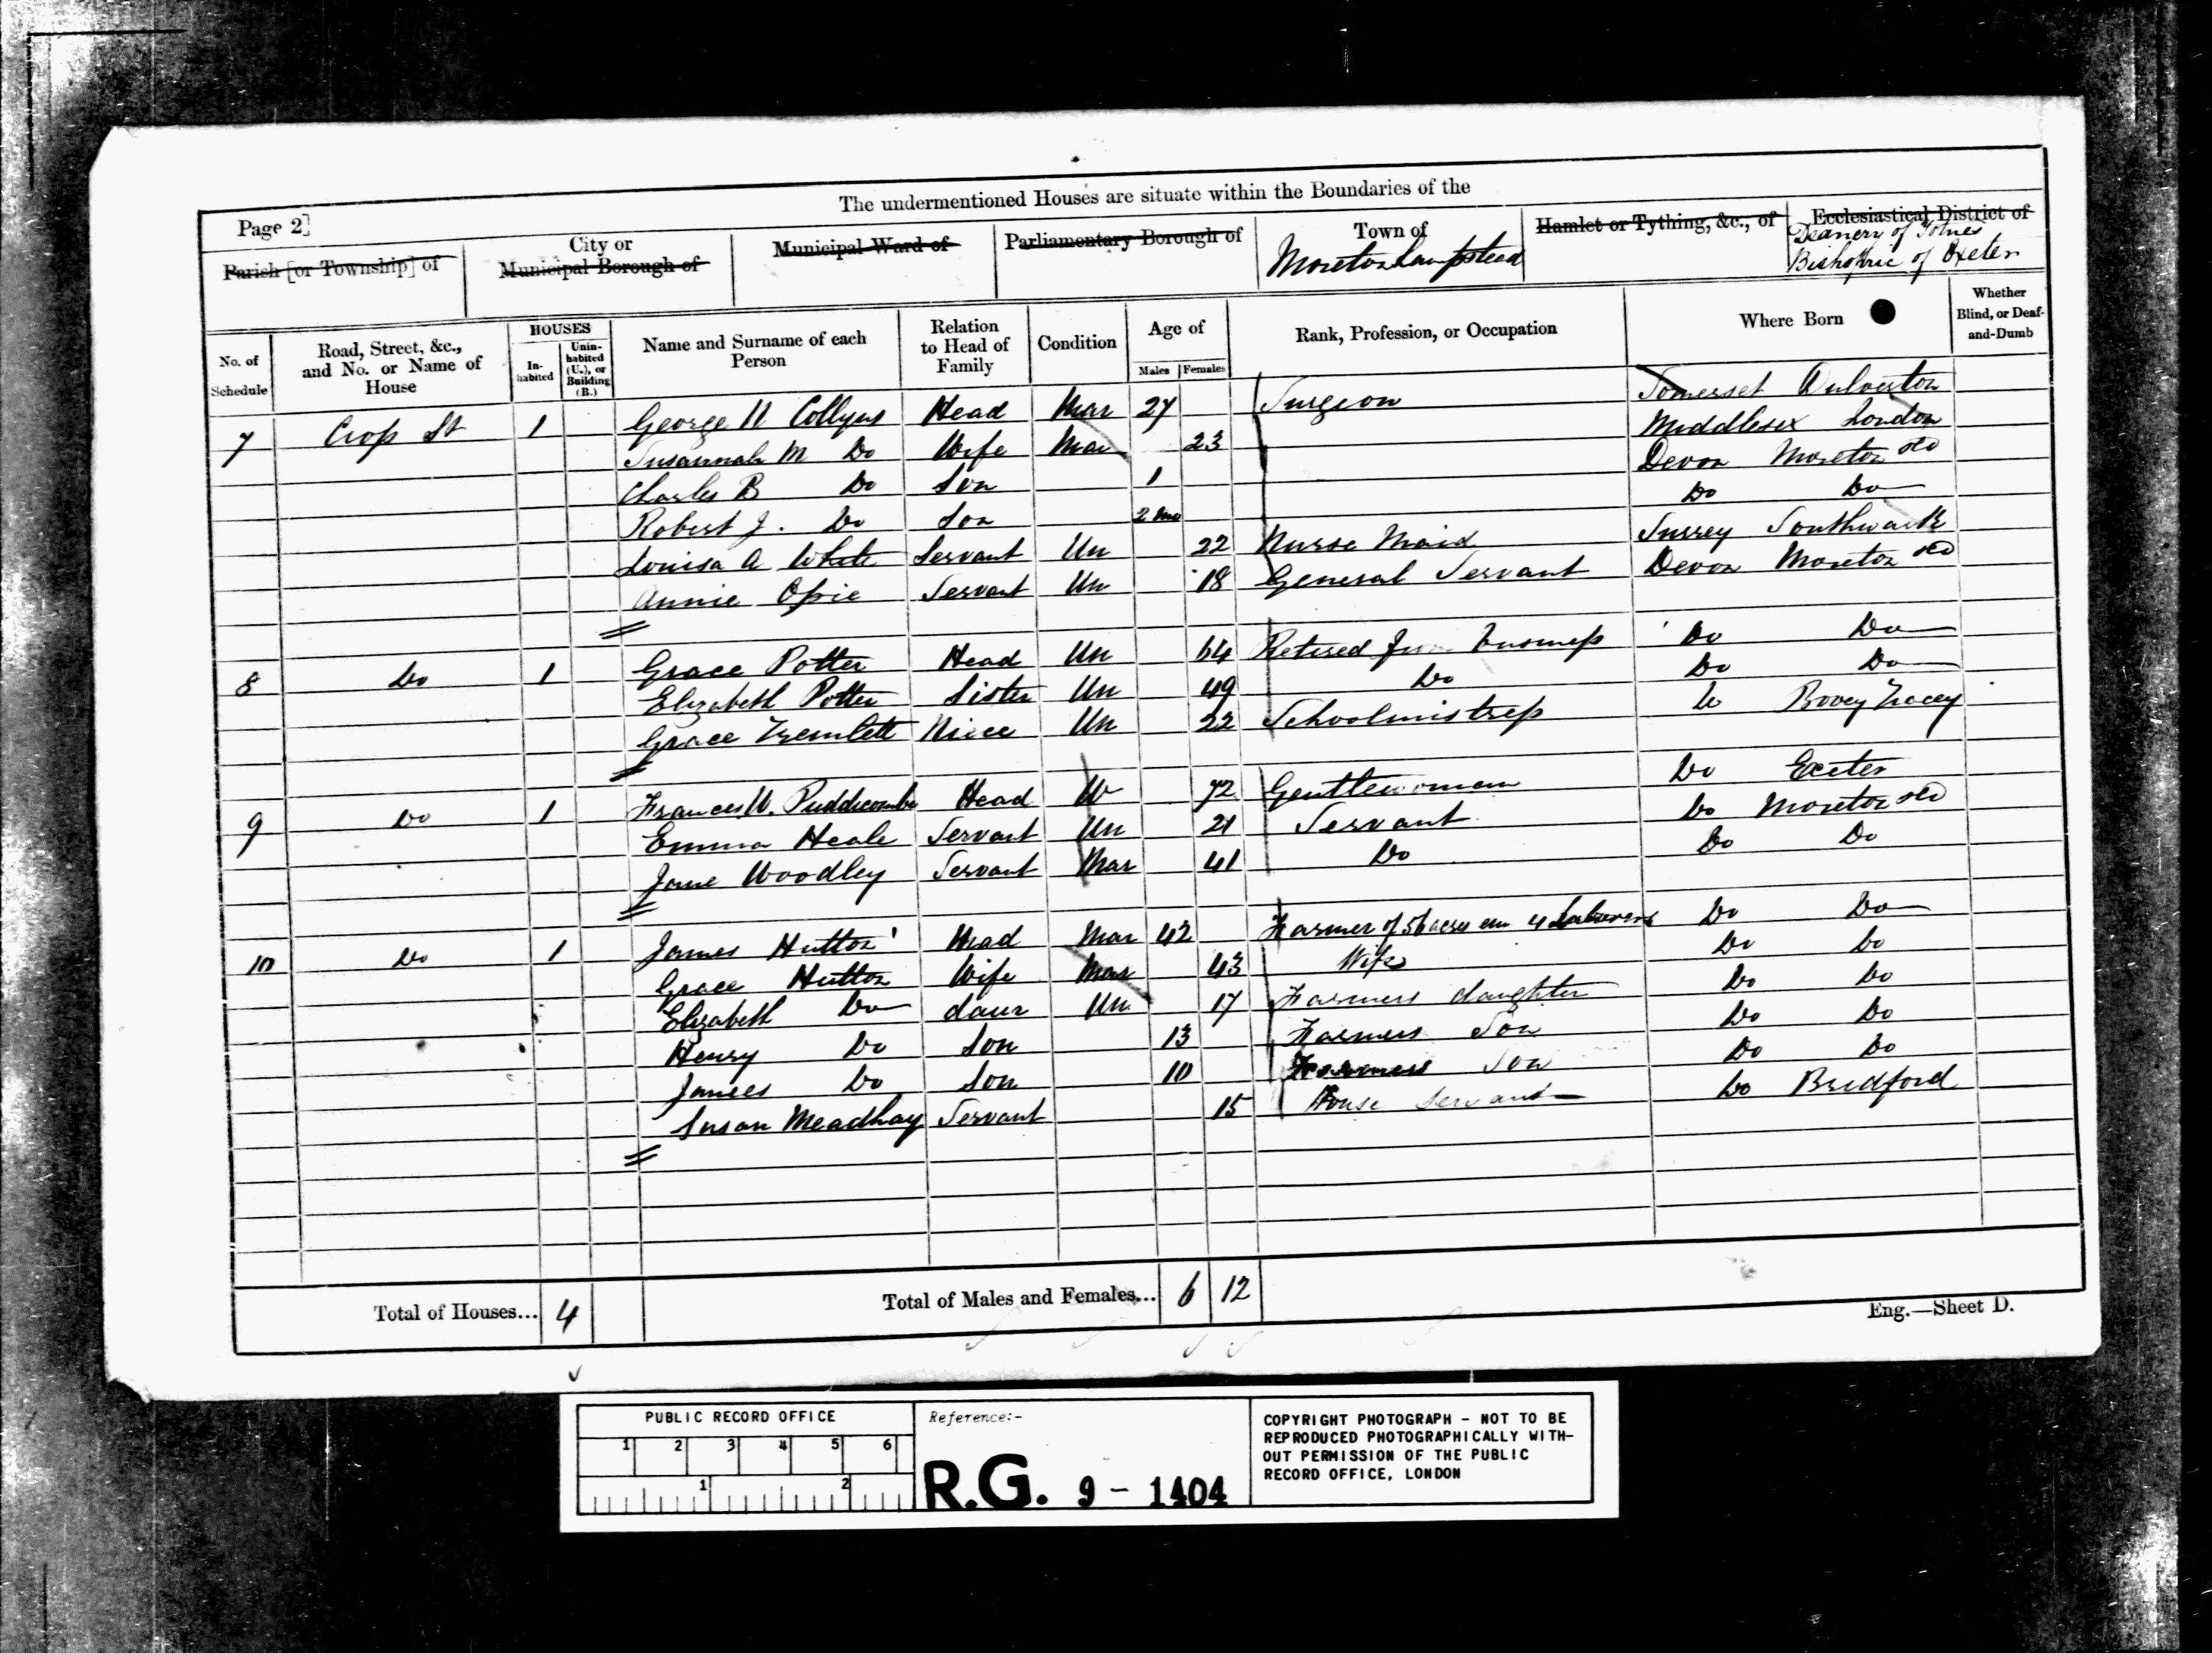 The undermentioned Houses are situate within the Boundaries of the
Page 2]
Parish [or Township] of
City or Municipal Borough of
Municipal Ward of
Parliamentary Borough of
Town of
Moretonhampstead
Hamlet or Tything, &c., of
Ecclesiastical District of
Deanery of Totnes
Bishopric of Exeter
No. of Schedule
Road, Street, &c., and No. or Name of House
HOUSES
In-habited
Unin-habited (U.), or Building (B.)
Name and Surname of each Person
Relation to Head of Family
Condition
Age of
Males Females
Rank, Profession, or Occupation
Where Born
Whether Blind, or Deaf-and-Dumb
7 Cross St 1 George N Collyns Head Mar 27 Surgeon Somerset Dulverton
Susannah M Do Wife Mar 23 Middlesex London
Charles B Do Son 1 Devon Moreton
Robert J. Do Son 2 Mo Do Do
Louisa A White Servant Un 22 Nurse Maid Surrey Southwark
Annie Opie Servant Un 18 General Servant Devon Moreton
8 Do 1 Grace Potter Head Un 64 Retired from business Do Do
Elizabeth Potter Sister Un 49 Do Do Do
Grace Tremlett Niece Un 22 Schoolmistress Do Bovey Tracey
9 Do 1 Frances W. Puddicombe Head W 72 Gentlewoman Do Exeter
Emma Heale Servant Un 21 Servant Do Moreton
Jane Woodley Servant Mar 41 Do Do Do
10 Do 1 James Hutton Head Mar 42 Farmer of 56 acres em 4 Labourers Do Do
Grace Hutton Wife Mar 43 Wife Do Do
Elizabeth Do daur Un 17 Farmers daughter Do Do
Henry Do Son 13 Farmers Son Do Do
James Do Son 10 Farmers Son Do Do
Susan Meadhay Servant 15 House Servant Do Bridford
Total of Houses... 4
Total of Males and Females... 6 12
Eng.—Sheet D.
PUBLIC RECORD OFFICE
1 2 3 4 5 6
1 2
Reference:-
R.G. 9 - 1404
COPYRIGHT PHOTOGRAPH - NOT TO BE
REPRODUCED PHOTOGRAPHICALLY WITH-
OUT PERMISSION OF THE PUBLIC
RECORD OFFICE, LONDON